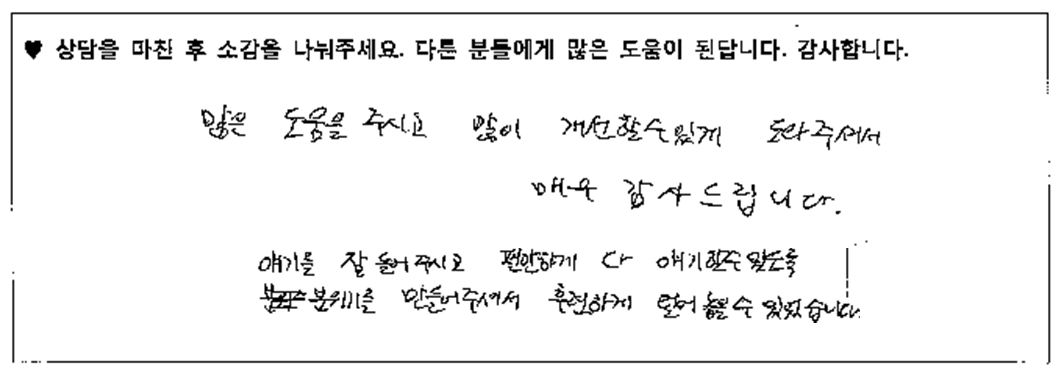 ♥ 상담을 마친 후 소감을 나눠주세요. 다른 분들에게 많은 도움이 된답니다. 감사합니다.
많은 도움을 주시고 많이 개선할수있게 도와주셔서
매우 감사드립니다.
얘기를 잘 들어주시고 편안하게 다 얘기할수있도록
분위기를 만들어주셔서 후련하게 털어 놓을 수 있었습니다.